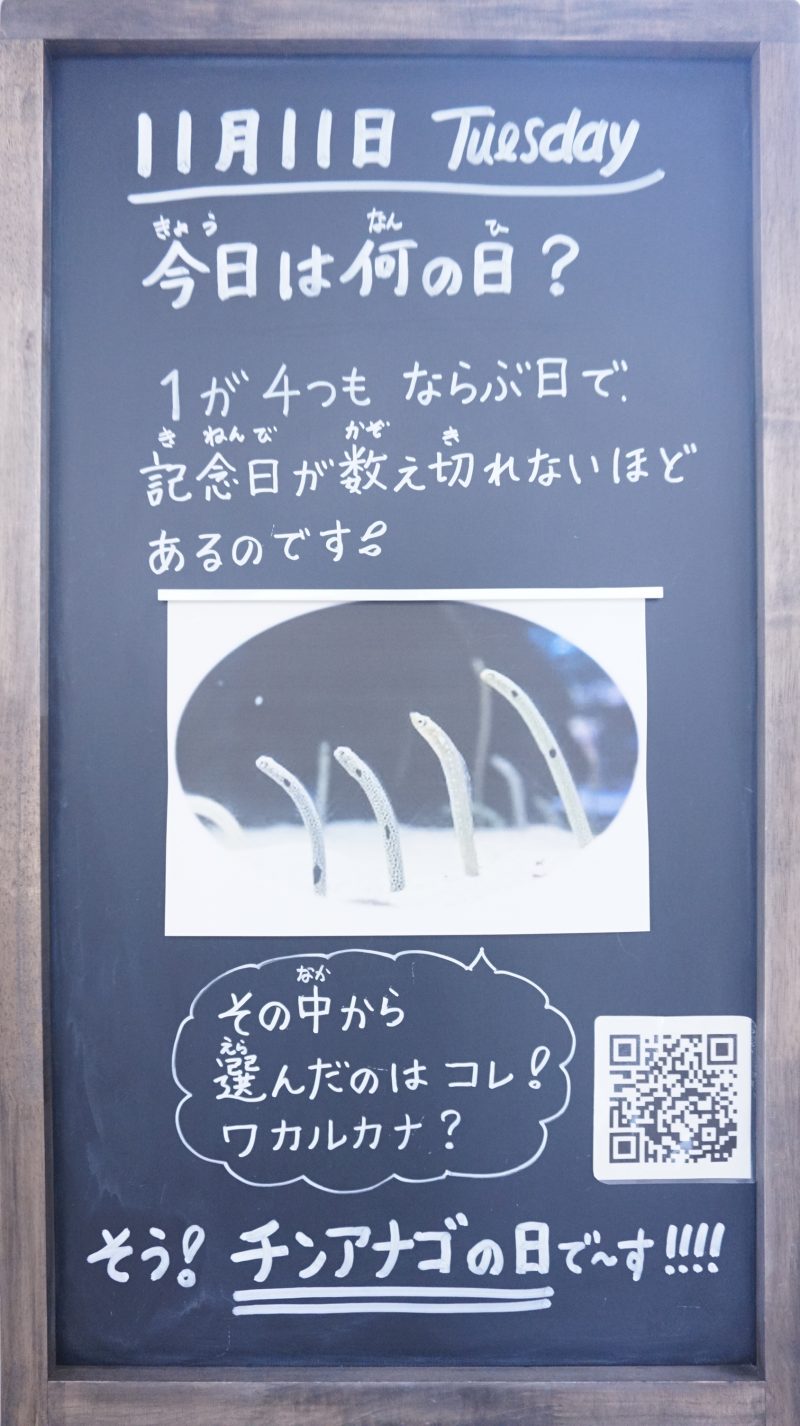 11月11日 Tuesday
きょう なん ひ
今日は何の日?
1が4つも ならぶ日で、
き ねん び かぞ き
記念日が数え切れないほど
あるのです!
なか
その中から
えら
選んだのは コレ!
ワカルカナ?
そう! チンアナゴの日で〜す!!!!